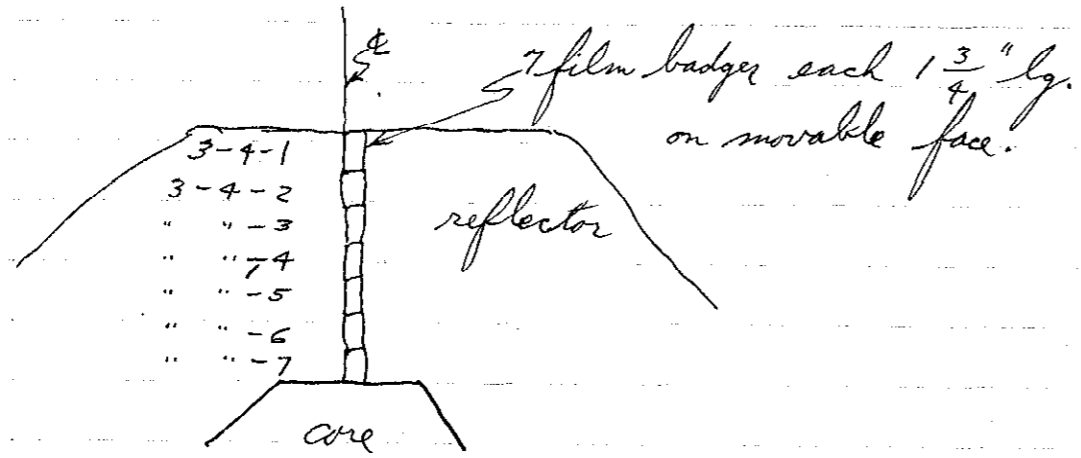 ℄
7 film badges each 1 3/4" lg.
on movable face.
3-4-1
3-4-2
" " -3
" " -4
" " -5
" " -6
" " -7
reflector
core